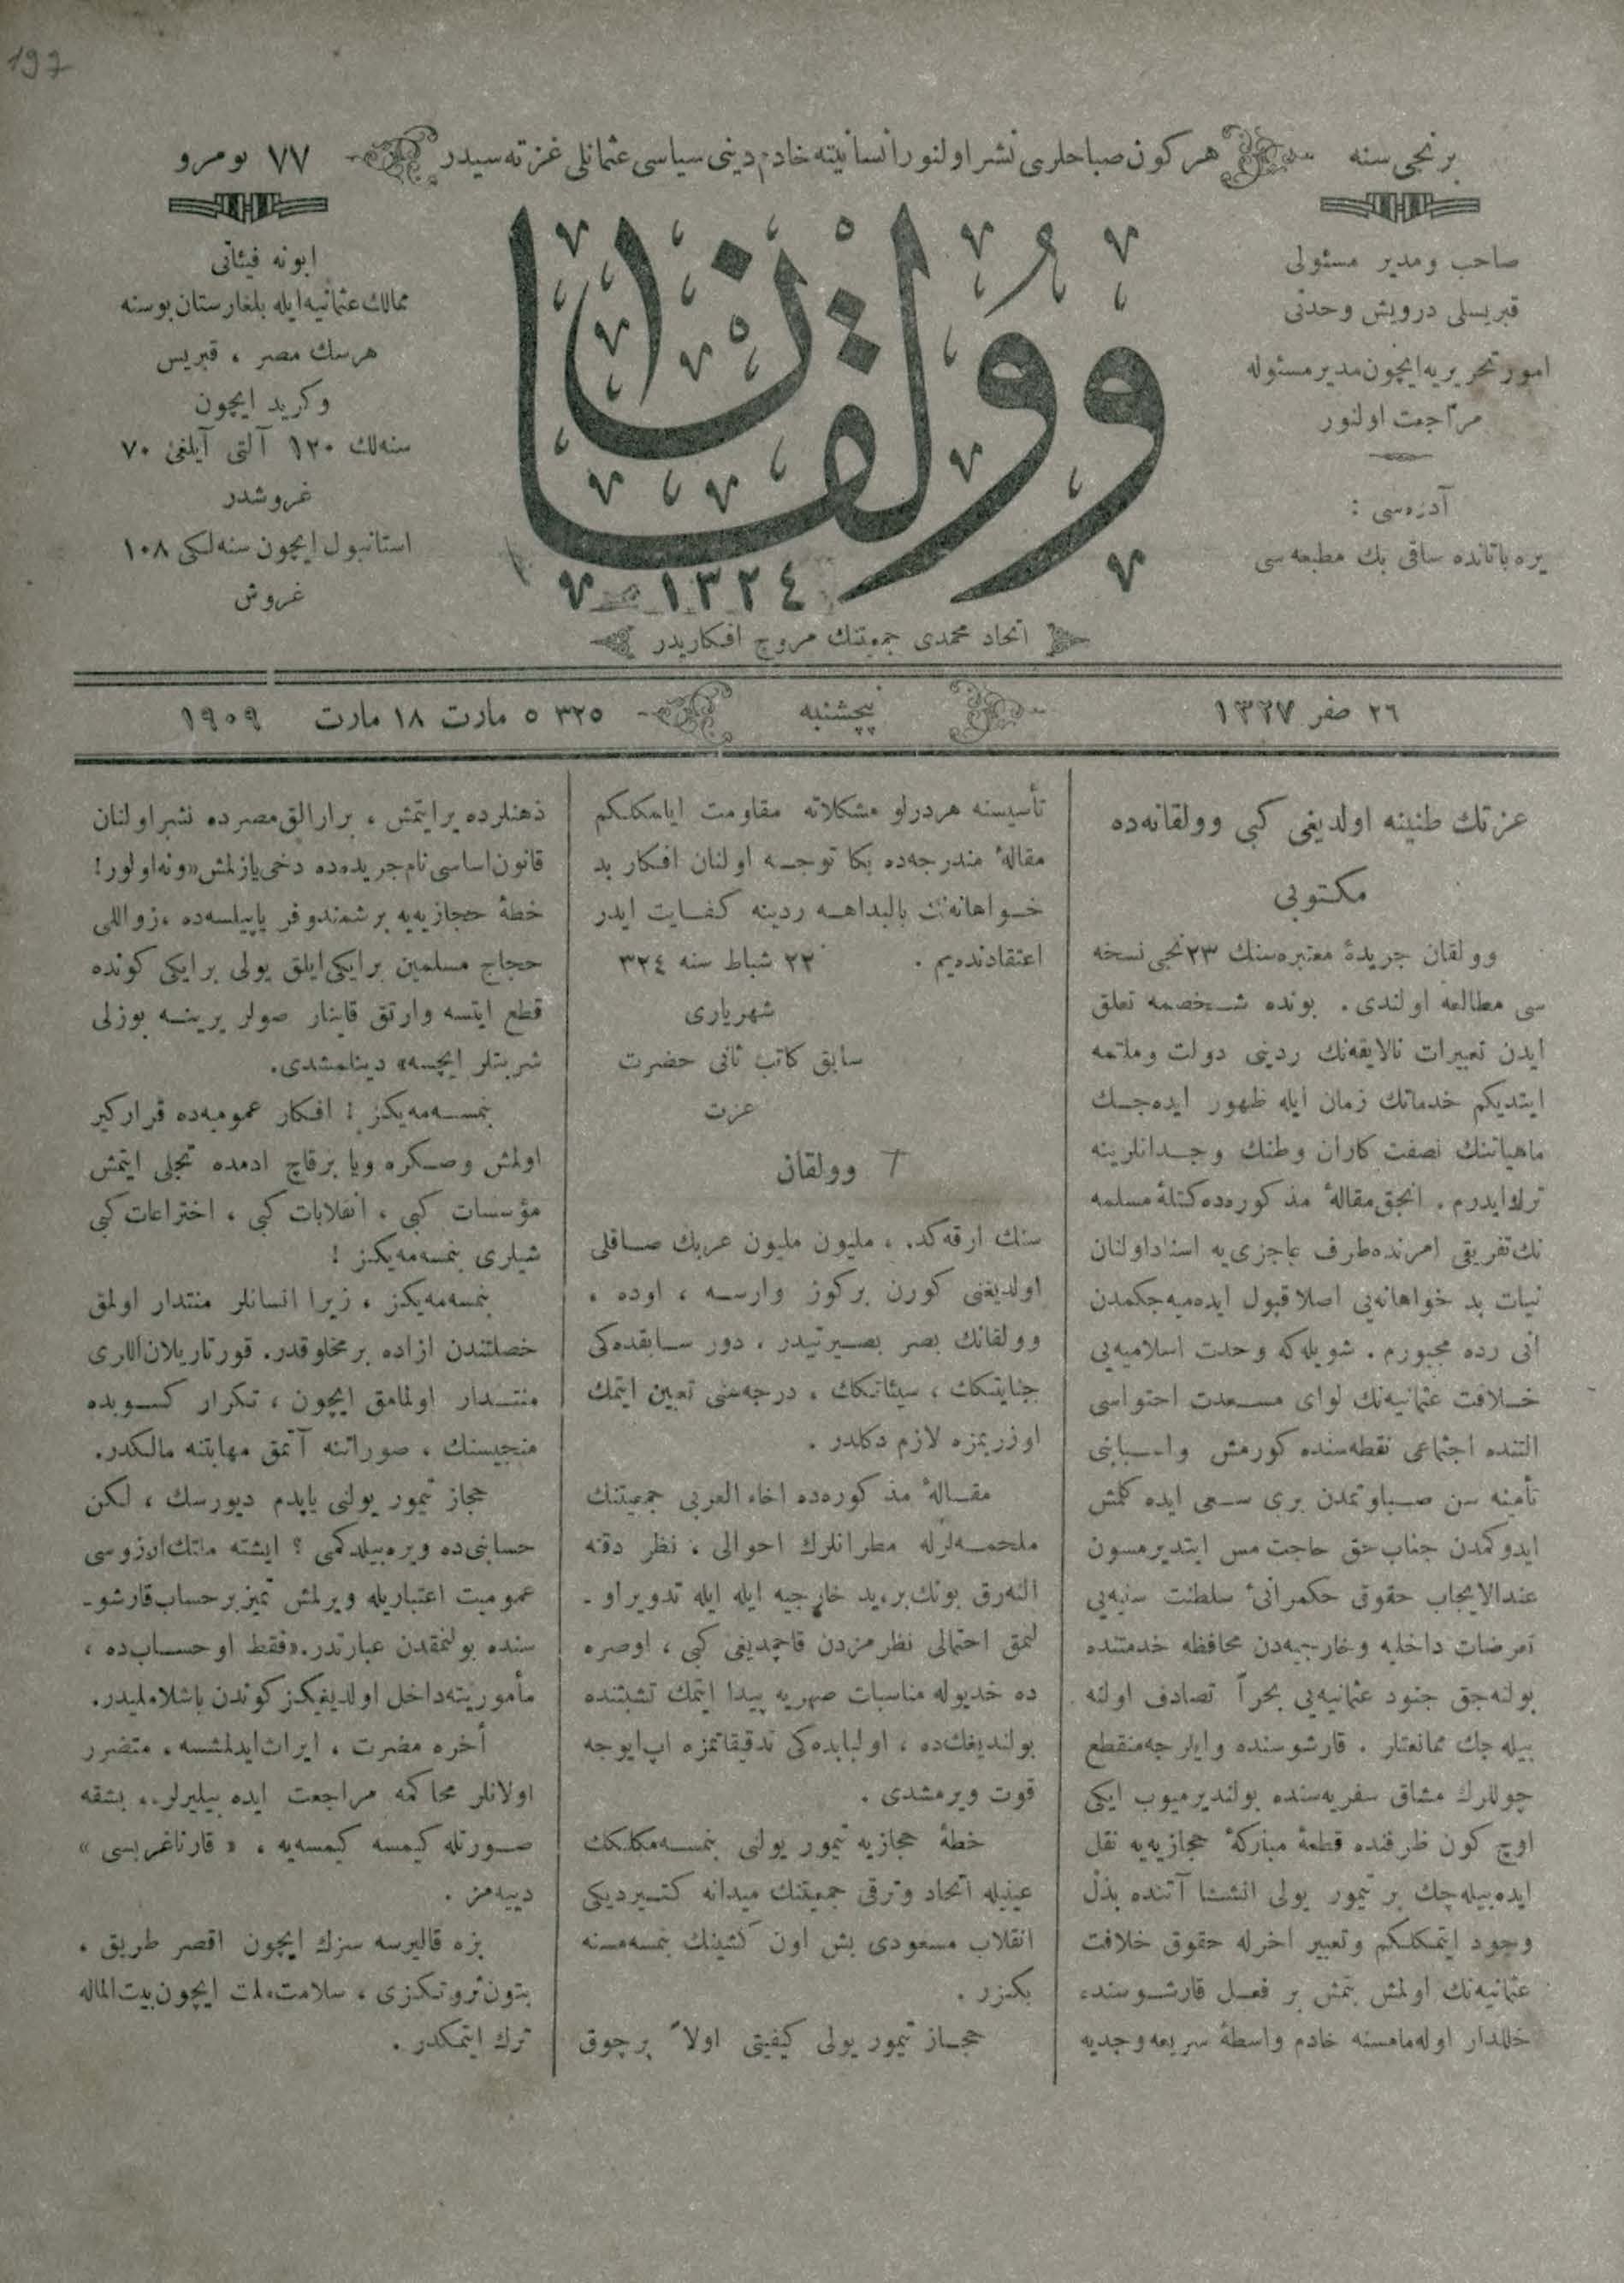 197
برنجی سنه
هرکون صباحلری نشر اولنور انسانیته خادم دینی سیاسی عثمانلی غزته سیدر
٧٧ نومرو
صاحب ومدیر مسئولی
قبریسلی درویش وحدتی
امور تحریریه ایچون مدیر مسئوله
مراجعت اولنور
آدره‌سی :
یره باتانده ساقی بك مطبعه سی
وولقان
١٣٢٤
اتحاد محمدی جمعیتنك مروج افکاریدر
ابونه فیئاتی
ممالك عثمانیه ایله بلغارستان بوسنه
هرسك مصر ، قبریس
وکرید ایچون
سنه‌لك ١٣٠ آلتی آیلغی ٧٠
غروشدر
استانبول ایچون سنه‌لكی ١٠٨
غروش
٢٦ صفر ١٣٢٧
پنچشنبه
٣٢٥ ٥ مارت ١٨ مارت ١٩٠٩
عزتك طنینه اولدیغی کبی وولقانه‌ده
مکتوبی
وولقان جریدهٔ معتبره‌سنك ٢٣نجی نسخه
سی مطالعه اولندی . بونده شخصمه تعلق
ایدن تعبیرات نالایقه‌نك ردینی دولت وملتمه
ایتدیکم خدماتك زمان ایله ظهور ایده‌جك
ماهیاتنك نصفت کاران وطنك وجدانلرینه
ترك ایدرم . انجق مقالهٔ مذکوره‌ده کتلهٔ مسلمه
نك تفریقی امرنده طرف عاجزی‌یه اسناد اولنان
نیات بد خواهانه‌یی اصلا قبول ایده‌میه‌جکمدن
انی رده مجبورم . شویله‌که وحدت اسلامیه‌یی
خلافت عثمانیه‌نك لوای مسعدت احتواسی
التنده اجتماعی نقطه‌سنده کورمش واسبابنی
تأمینه سن صباوتمدن بری سعی ایده کلمش
ایدوکمدن جناب حق حاجت مس ایتدیرمسون
عندالایجاب حقوق حکمرانیٔ سلطنت سنیه‌یی
تعرضات داخلیه وخارجیه‌دن محافظه خدمتنده
بولنه‌جق جنود عثمانیه‌یی بحراً تصادف اولنه
بیله‌جك ممانعتلر . قارشوسنده وایلرجه منقطع
چوللرك مشاق سفریه‌سنده بولندیرمیوب ایکی
اوچ کون ظرفنده قطعهٔ مبارکهٔ حجازیه‌یه نقل
ایده‌بیله‌جك بر تیمور یولی انشا آتنده بذل
وجود ایتمکلکم وتعبیر اخرله حقوق خلافت
عثمانیه‌نك اولمش بتمش بر فعل قارشوسنده
خللدار اوله‌مامسنه خادم واسطهٔ سریعه وجدیه
تأسیسنه هردرلو مشکلاته مقاومت ایلمکلکم
مقالهٔ مندرجه‌ده بکا توجه اولنان افکار بد
خواهانه‌نك بالبداهه ردینه کفایت ایدر
اعتقادنده‌یم . ٢٢ شباط سنه ٣٢٤
شهریاری
سابق کاتب ثانی حضرت
عزت
وولقان
سنك ارقه‌کده ، ملیون ملیون عربك صاقلی
اولدیغنی کورن برکوز وارسه ، اوده ،
وولقانك بصر بصیرتیدر . دور سابقده‌کی
جنایتکك ، سیئاتکك ، درجه‌سنی تعیین ایتمك
اوزریمزه لازم دکلدر .
مقالهٔ مذکوره‌ده اخاء العربی جمعیتنك
ملحمه‌لرله مطرانلرك احوالی ، نظر دقته
النه‌رق بونك برید خارجیه ایله ایله تدویر او ـ
لنمق احتمالی نظرمزدن قاچمدیغی کبی ، اوصره
ده خدیوله مناسبات صهریه پیدا ایتمك تشبثنده
بولندیغك‌ده ، اولبابده‌کی تدقیقاتمزه اپ‌ایوجه
قوت ویرمشدی .
خطهٔ حجازیه تیمور یولی بنمسه‌مکلکك
عینیله اتحاد وترقی جمعیتنك میدانه کتیردیکی
انقلاب مسعودی بش اون کشینك بنمسه‌مسنه
بکزر .
حجاز تیمور یولی کیفیتی اولاً برچوق
ذهنلرده یر ایتمش ، بر ارالق مصرده نشر اولنان
قانون اساسی نام جریده‌ده دخی یازلمش «ونه اولور!
خطهٔ حجازیه‌یه بر شمندوفر یاپیلسه‌ده ، زواللی
حجاج مسلمین بر ایکی ایلق یولی بر ایکی کونده
قطع ایتسه وارتق قاینار صولر یرینه بوزلی
شربتلر ایچسه» دینلمشدی.
بنمسه‌مه‌یکز ! افکار عمومیه‌ده قرارکیر
اولمش وصکره ویا برقاچ ادمده تجلی ایتمش
مؤسسات کبی ، انقلابات کبی ، اختراعات کبی
شیلری بنمسه‌مه‌یکز !
بنمسه‌مه‌یکز ، زیرا انسانلر منتدار اولمق
خصلتندن ازاده بر مخلوقدر. قورتاریلان‌اللری
منتدار اولمامق ایچون ، تکرار کسوبده
منجیسنك ، صوراتنه آتمق مهابتنه مالکدر.
حجاز تیمور یولنی یاپدم دیورسك ، لکن
حسابنی‌ده ویره‌بیلدکمی ؟ ایشته ملتك ارزوسی
عمومیت اعتباریله ویرلمش تمیز بر حساب قارشو ـ
سنده بولنمقدن عبارتدر. فقط او حساب‌ده ،
مأموریته داخل اولدیغکز کوندن باشلاملیدر.
أخره مضرت ، ایراث ایدلمشسه ، متضرر
اولانلر محاکمه مراجعت ایده بیلیرلر ، بشقه
صورتله کیمسه کیمسه‌یه ، « قارناغریسی »
دییه‌مز .
بزه قالیرسه سزك ایچون اقصر طریق ،
بتون ثروتکزی ، سلامت ملت ایچون بیت الماله
ترك ایتمکدر .